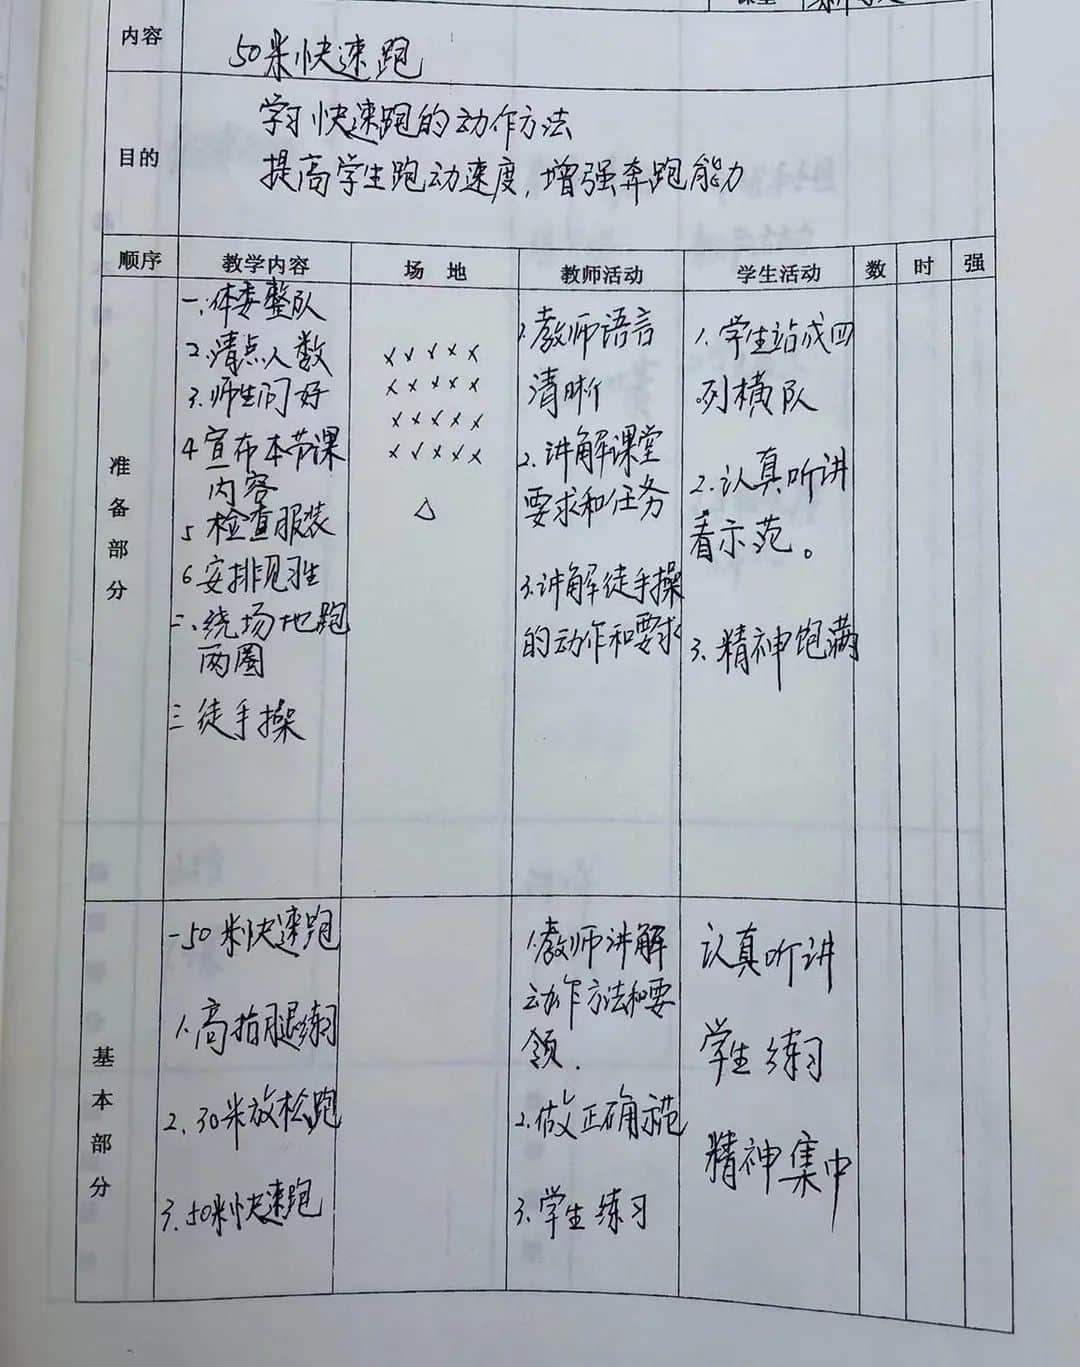 内容
50米快速跑
目的
学习快速跑的动作方法
提高学生跑动速度,增强奔跑能力
顺序 教学内容 场地 教师活动 学生活动 数 时 强
准备部分
一、体委整队
2.清点人数
3.师生问好
4宣布本节课
内容
5检查服装
6安排见习生
二、绕场地跑
两圈
三 徒手操
×××××
×××××
×××××
×××××
△
1.教师语言
清晰
2.讲解课堂
要求和任务
3.讲解徒手操
的动作和要求
1.学生站成四
列横队
2.认真听讲
看示范。
3.精神饱满
基本部分
一50米快速跑
1.高抬腿练习
2.30米放松跑
3.50米快速跑
1.教师讲解
动作方法和要
领.
2.做正确示范
3.学生练习
认真听讲
学生练习
精神集中